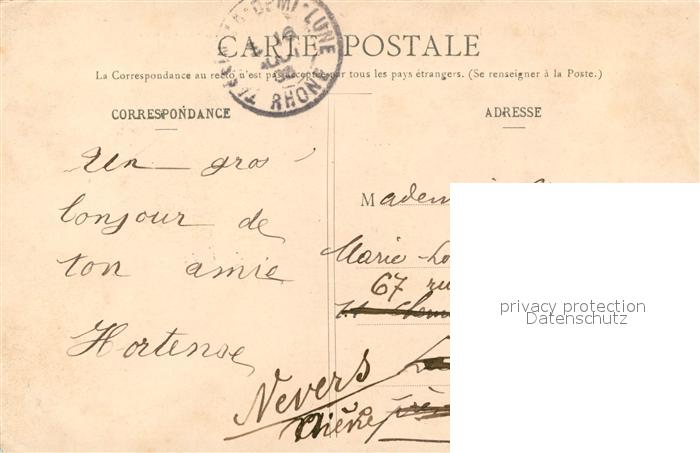 CARTE POSTALE
La Correspondance au recto n'est pas acceptée par tous les pays étrangers. (Se renseigner à la Poste.)
DEMI-LUNE
RHONE
CORRESPONDANCE
Un gros
bonjour de
ton amie
Hortense
ADRESSE
Madem
Marie
67 ru
Nevers
privacy protection
Datenschutz